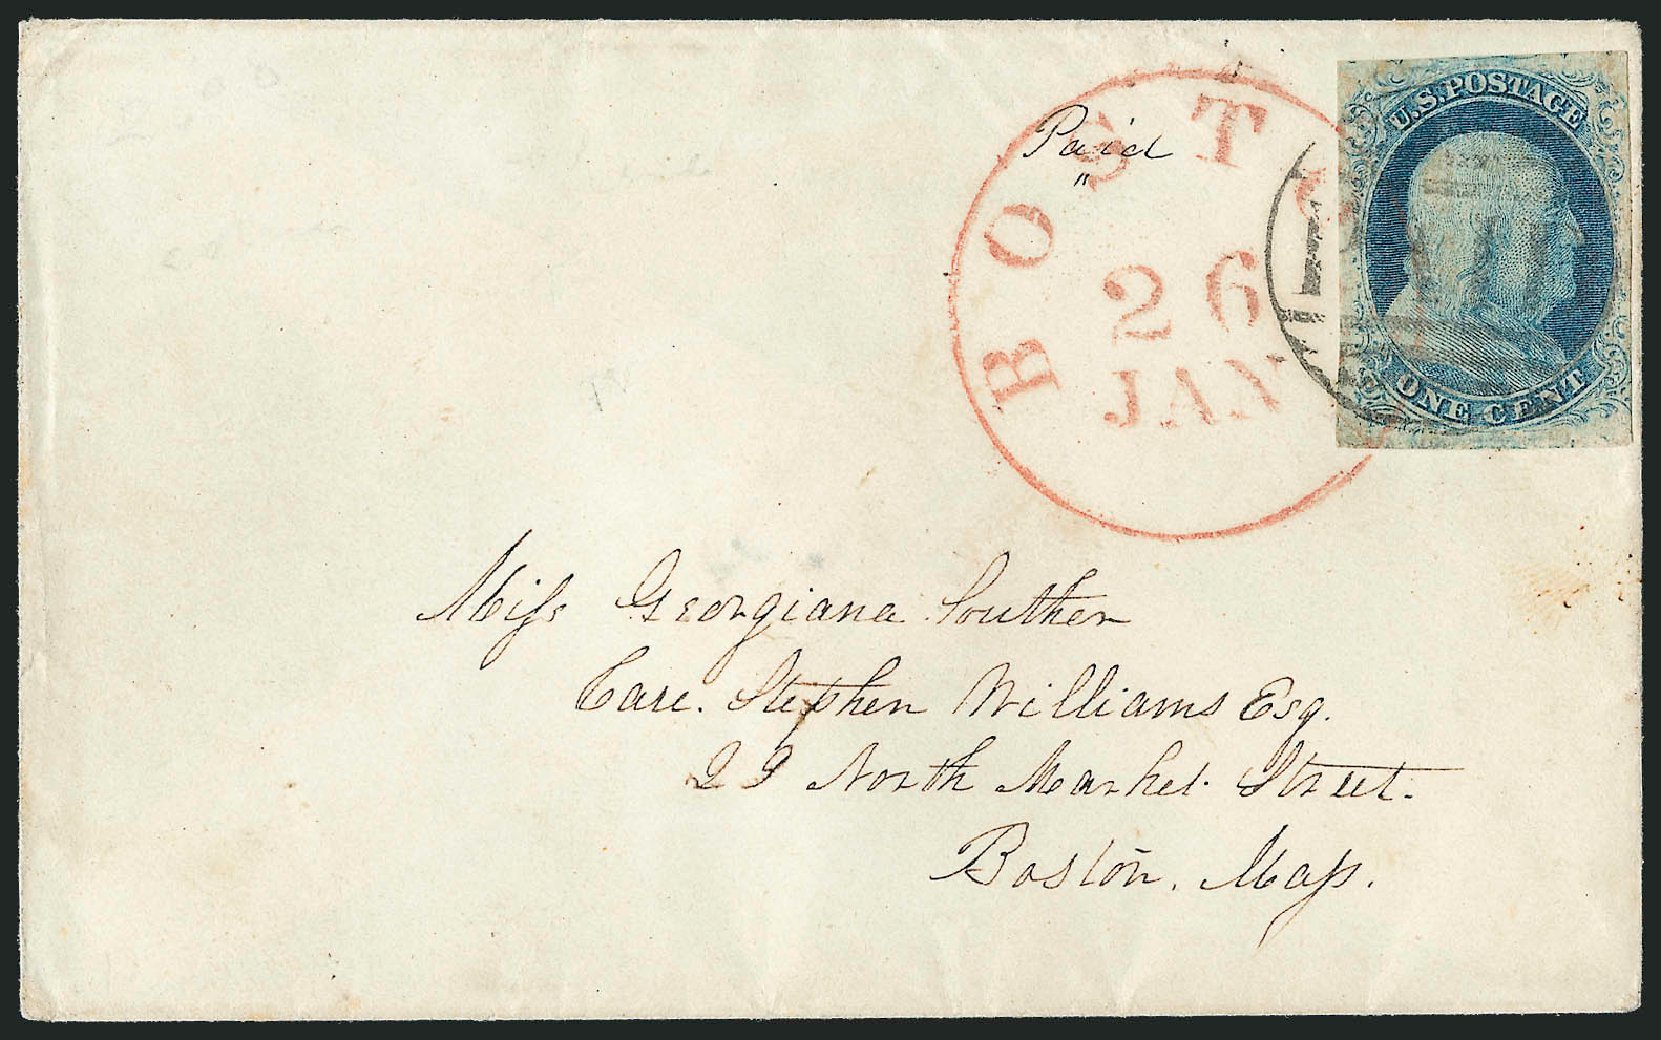 U.S. POSTAGE
ONE CENT
BOSTO
26
JAN
Paid
"
Miss Georgiana Souther
Care. Stephen Williams Esq.
22 North Market. Street.
Boston. Mass.